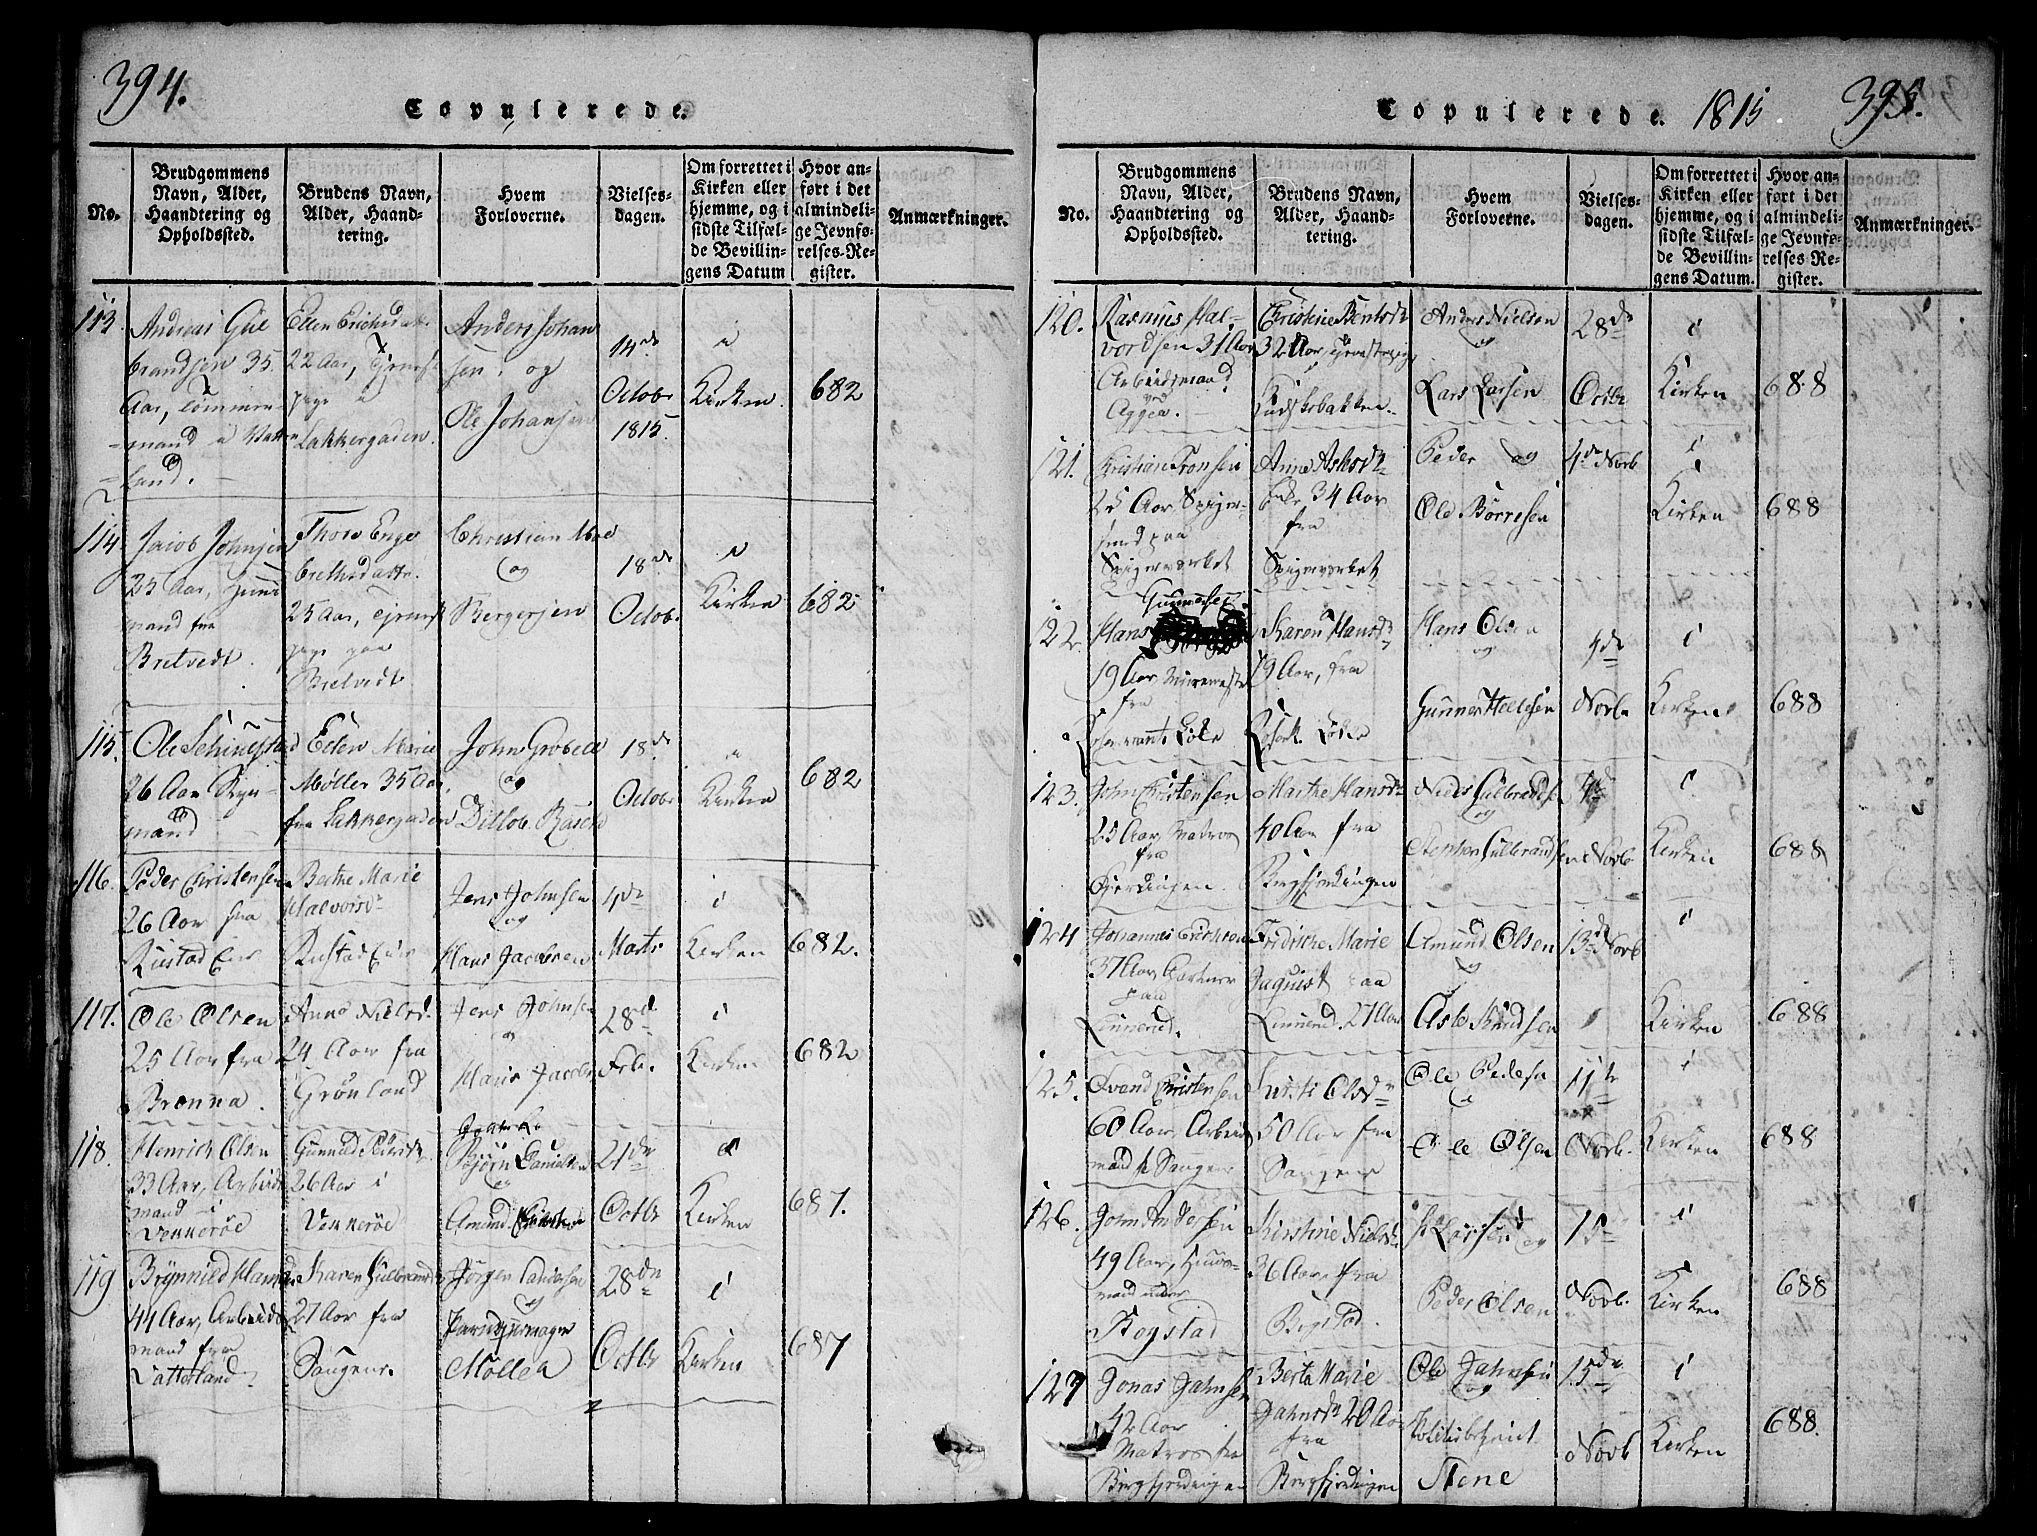 394.
Copulerede.
No.
Brudgommens
Navn, Alder,
Haandtering og
Opholdssted.
Brudens Navn,
Alder, Haand-
tering.
Hvem
Forloverne.
Vielses-
dagen.
Om forrettet i
Kirken eller
hjemme, og i
sidste Tilfæl-
de Bevillin-
gens Datum
Hvor an-
ført i det
almindeli-
ge Jevnfø-
relses-Re-
gister.
Anmærkninger.
113.
Andreas Gul
brandsen 35
Aar, Tømmer-
mand i Vatter
land.
Ellen Erichsdatter
22 Aar, Tjeneste
pige i
Lakkergaden.
Anders Johan
sen, og
Ole Johansen
14de
Octobr
1815.
i
Kirken.
682
114
Jacob Johnsen
25 Aar,
mand fra
Bretvedt.
Thore Enge
brethsdatter.
25 Aar, Tjeneste
pige paa
Bretvedt
Christian Moe
og
Bergersen
18de
Octobr.
i
Kirken
682
115
Ole
26 Aar
mand
Ellen Marie
Møller 35 Aar,
fra Lakkergaden
John Grobell
og
Ditlev
18de
Octobr
i
Kirken
682
116.
Peder Christensen
26 Aar fra
Rustad Eier
Berthe Marie
Halvorsdr
Rustad Eier
Jens Johnsen
og
Hans Jacobsen
4de
Marts
i
Kirken
682.
117.
Ole Olsen
25 Aar fra
Brenna.
Anne Nielsd.
24 Aar fra
Grønland
Jens Johnsen
og
Hans Jacobs.
28d
Feb.
i
Kirken
682
118.
Henrich Olsen
33 Aar, Arbeids
mand i
Vennerøe
Gunnild Pedersdr
26 Aar i
Vennerøe
Bjørn Danielsen
og
Amund
21de
Octbr
i
Kirken
687.
119
Brynnild
44 Aar, Arbeids
mand fra
Vatterland.
Karen Gulbrandsdr
27 Aar fra
Saugene.
Jørgen Andersen
og
Parykmager
Møller
28de
Octbr
i
Kirken
687
Copulerede. 1815
395.
No.
Brudgommens
Navn, Alder,
Haandtering og
Opholdssted.
Brudens Navn,
Alder, Haand-
tering.
Hvem
Forloverne.
Vielses-
dagen.
Om forrettet i
Kirken eller
hjemme, og i
sidste Tilfæl-
de Bevillin-
gens Datum.
Hvor an-
ført i det
almindeli-
ge Jevnfø-
relses-Re-
gister.
Anmærkninger.
120.
Rasmus Hal-
vordsen 31 Aar
Arbeidsmand
ved
Aggen.
Christine Berntsdr
32 Aar, Tjenestepige
Kudskebakken.
Anders Nielsen
og
Lars Larsen
28de
Octbr
i
Kirken
688
121.
Christian Tronsen
25 Aar Spiger-
smed paa
Spigerværket
Anne Aslesdr
Enke 34 Aar
fra
Spigerværket
Peder og
Ole Børresen
4de Novb
i
Kirken
688
122.
Gunnersen
Hans
19 Aar Muremester
fra
Løke
Karen Hansdr
19 Aar, fra
Løke
Hans Olsen
og
Gunner Hellesen
4de
Novbr
i
Kirken
688
123.
John Christensen
25 Aar, Matros
fra
Fjerdingen.
Marthe Hansdr
40 Aar fra
Bergfjerdingen
Niels Gulbrandsen
og
Gulbrandsen
4de
Novb
i
Kirken
688
124
Johannes Erichsen
37 Aar, Gartner
paa
Linnerud.
Fredriche Marie
Jaquist paa
Linnerud. 27 Aar
Amund Olsen
og
Asle Knudsen
13de Novb
i
Kirken
688
125.
Svend Christensen
60 Aar, Arbeids
mand p Saugene
Olsdr
50 Aar fra
Saugene
Ole Pedersen
og
Ole Olsen
11te
Novb.
i
Kirken
688
126.
John Andersen
49 Aar, Huus-
mand under
Rogstad
Kirstine Nielsdr
36 Aar, fra
Larsen og
Peder Olsen
15de
Novb.
i
Kirken
688
127
Jonas Jahnsen
42 Aar
Matros fra
Bergfjerdingen
Berta Marie
Jahnsdr 20 Aar
fra
Bergfjerdingen
Ole Jahnsen
og
Politibetjent
Stene
15de
Novb
i
Kirken
688.